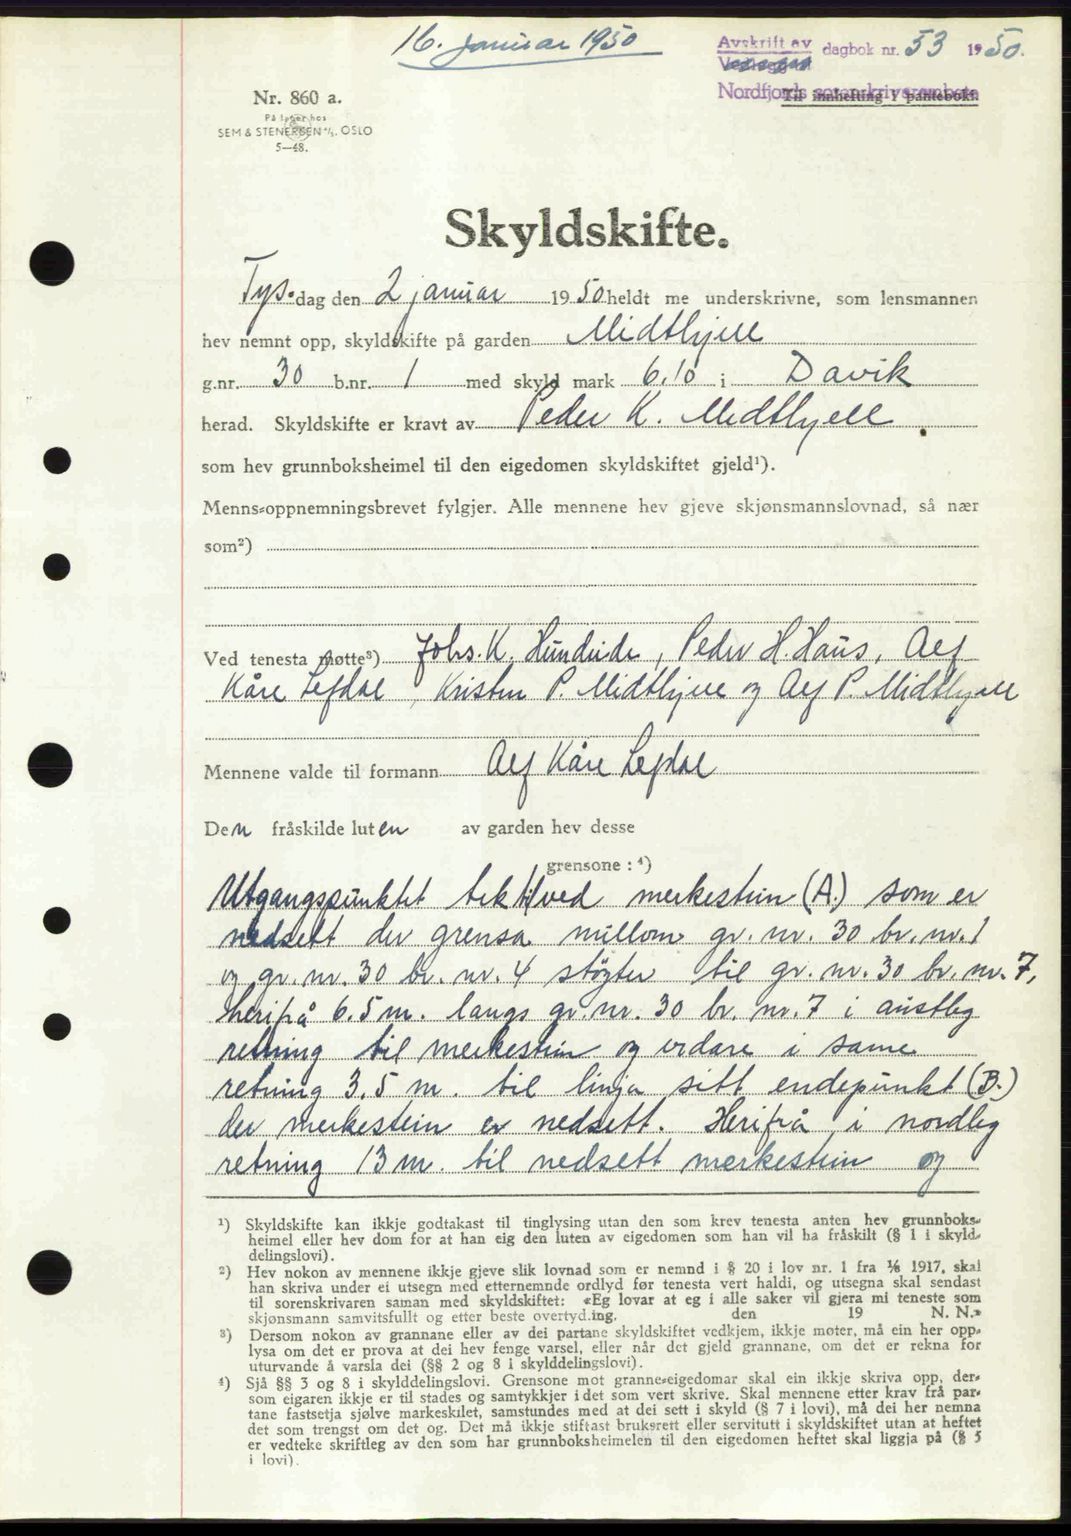 16. januar 1950
Avskrift av
dagbok nr. 53 1950.
Nordfjords sorenskriverembete
Til innhefting i panteboki.
Nr. 860 a.
På lager hos
SEM & STENERSEN A/S. OSLO
5—48.
Skyldskifte.
Tys-dag den 2 januar 1950 heldt me underskrivne, som lensmannen
hev nemnt opp, skyldskifte på garden Midthjell
g.nr. 30 b.nr. 1 med skyld mark 6.10 i Davik
herad. Skyldskifte er kravt av Peder K. Midthjell
som hev grunnboksheimel til den eigedomen skyldskiftet gjeld¹).
Menns-oppnemningsbrevet fylgjer. Alle mennene hev gjeve skjønsmannslovnad, så nær
som²)
Ved tenesta møtte³) Johs. K. Hundeide, Peder H. Haus, Alf
Kåre Lefdal, Kristen P. Midthjell og Alf P. Midthjell
Mennene valde til formann Alf Kåre Lefdal
Den fråskilde luten av garden hev desse
grensone : ⁴)
Utgangspunktet tek til ved merkestein (A.) som er
nedsett der grensa millom gr. nr. 30 br. nr. 1
og gr. nr. 30 br. nr. 4 støyter til gr. nr. 30 br. nr. 7,
herifrå 6.5 m. langs gr. nr. 30 br. nr. 7 i austleg
retning til merkestein og vidare i same
retning 3.5 m. til linja sitt endepunkt (B.)
der merkestein er nedsett. Herifrå i nordleg
retning 13 m. til nedsett merkestein og
¹) Skyldskifte kan ikkje godtakast til tinglysing utan den som krev tenesta anten hev grunnboks-
heimel eller hev dom for at han eig den luten av eigedomen som han vil ha fråskilt (§ 1 i skyld-
delingslovi).
²) Hev nokon av mennene ikkje gjeve slik lovnad som er nemnd i § 20 i lov nr. 1 fra 1/6 1917, skal
han skriva under ei utsegn med etternemnde ordlyd før tenesta vert haldi, og utsegna skal sendast
til sorenskrivaren saman med skyldskiftet: «Eg lovar at eg i alle saker vil gjera mi teneste som
skjønsmann samvitsfullt og etter beste overtyding. den 19 N. N.»
³) Dersom nokon av grannane eller av dei partane skyldskiftet vedkjem, ikkje møter, må ein her opp-
lysa om det er prova at dei hev fenge varsel, eller når det gjeld grannane, om det er rekna for
uturvande å varsla dei (§§ 2 og 8 i skylddelingslovi).
⁴) Sjå §§ 3 og 8 i skylddelingslovi. Grensone mot granne-eigedomar skal ein ikkje skriva opp, der-
som eigaren ikkje er til stades og samtykkjer i det som vert skrive. Skal mennene etter krav frå par-
tane fastsetja sjølve markeskilet, samstundes med at dei sett i skyld (§ 7 i lovi), må dei her nemna
det som trengst om det og. Det må ikkje stiftast bruksrett eller servitutt i skyldskiftet utan at heftet
er vedteke skriftleg av den som har grunnboksheimelen til den eigedomen heftet skal liggja på (§ 5
i lovi).